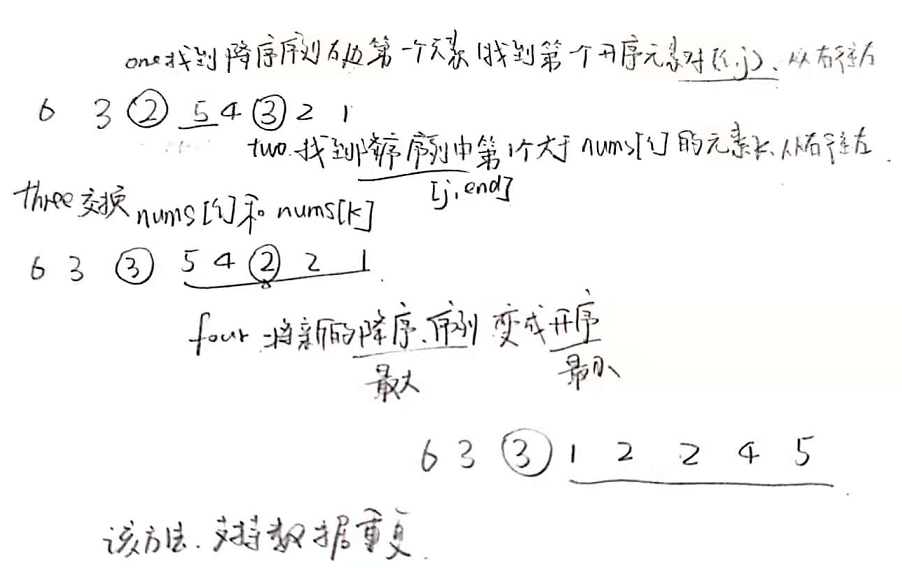 one找到降序序列右边第一个元素(找到第一个升序元素对(i,j)、从右往左
6 3 2 5 4 3 2 1
two.找到降序序列中第1个大于nums[i]的元素k.从右往左.
[j,end]
three交换nums[i]和nums[k]
6 3 3 5 4 2 2 1
four 将新的降序序列变成升序
最大 最小
6 3 3 1 2 2 4 5
该方法.支持数据重复.